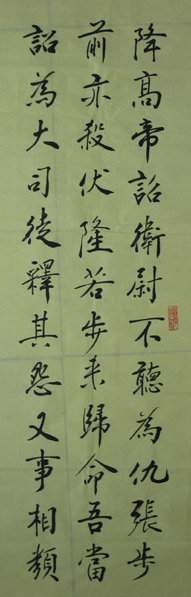 降高帝詔衛尉不聽為仇張步
前亦殺伏隆若步來歸命吾當
詔為大司徒釋其怨又事相類